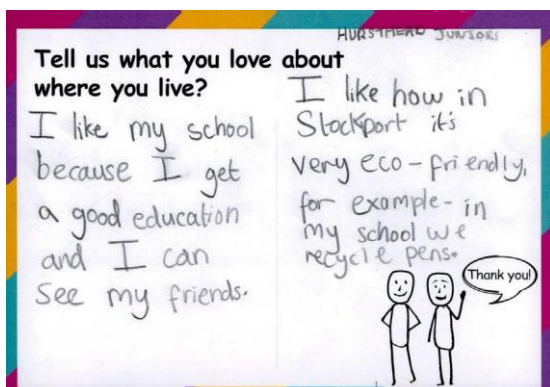 HURSTHEAD JUNIORS
Tell us what you love about
where you live?
I like my school
because I get
a good education
and I can
See my friends.
I like how in
Stockport it's
very eco-friendly,
for example- in
my school we
recycle pens.
Thank you!